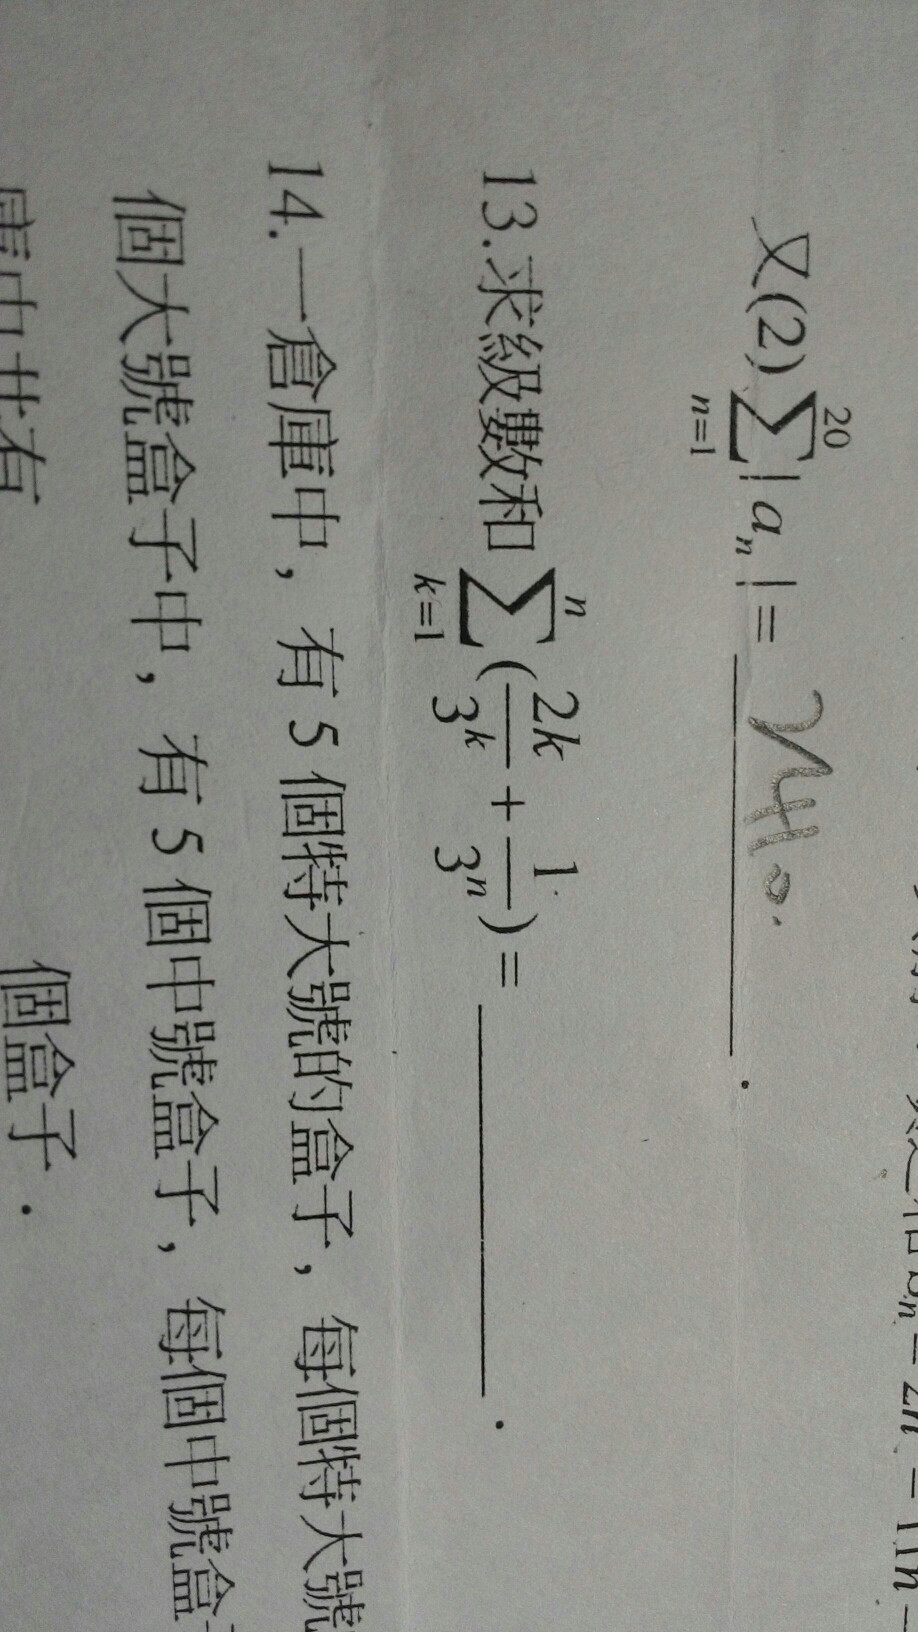 S_n = 2n² - 11n
又(2) \sum_{n=1}^{20} | a_n | = 740.
13.求級數和 \sum_{k=1}^{n} ( \frac{2k}{3^k} + \frac{1}{3^n} ) = ______ .
14.一倉庫中，有 5 個特大號的盒子，每個特大號
個大號盒子中，有 5 個中號盒子，每個中號盒
庫中共有 個盒子．